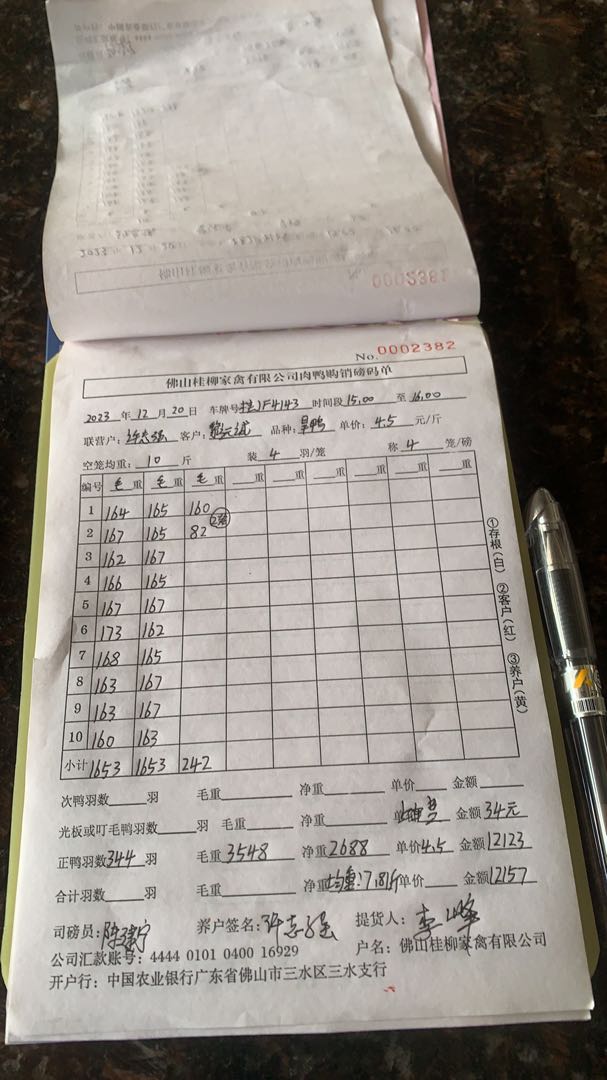 0002381
No. 0002382
佛山桂柳家禽有限公司肉鸭购销磅码单
2023 年 12 月 20 日 车牌号 F4143 时间段 15.00 至 16.00
联营户: 许志强 客户: 品种: 旱鸭 单价: 4.5 元/斤
空笼均重: 10 斤 装 4 羽/笼 称 4 笼/磅
编号 毛重 毛重 毛重 重 重 重 重 重
1 164 165 160
2 167 165 82 2笼
3 162 167
4 166 165
5 167 167
6 173 162
7 168 165
8 163 167
9 163 167
10 160 163
小计 1653 1653 242
①存根(白) ②客户(红) ③养户(黄)
次鸭羽数 羽 毛重 净重 单价 金额
光板或叮毛鸭羽数 羽 毛重 净重 费 金额 34元
正鸭羽数 344 羽 毛重 3548 净重 2688 单价 4.5 金额 12123
合计羽数 羽 毛重 净重 均重:7.81斤 单价 金额 12157
司磅员: 养户签名: 许志强 提货人: 李
公司汇款账号: 4444 0101 0400 16929 户名: 佛山桂柳家禽有限公司
开户行: 中国农业银行广东省佛山市三水区三水支行